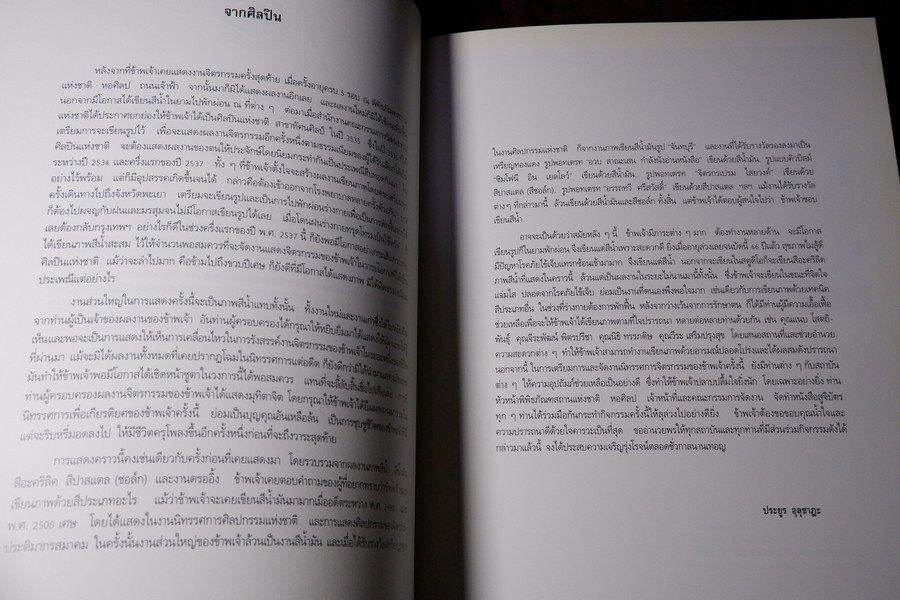 จากศิลปิน
หลังจากที่ข้าพเจ้าเคยแสดงงานจิตรกรรมครั้งสุดท้าย เมื่อครั้งอายุครบ 5 รอบ ณ พิพิธภัณฑสถาน
แห่งชาติ หอศิลป ถนนเจ้าฟ้า จากนั้นมาก็มิได้แสดงผลงานอีกเลย และผลงานใหม่ก็มิได้เขียน
นอกจากมีโอกาสได้เขียนสีน้ำในยามไปพักผ่อน ณ ที่ต่าง ๆ ต่อมาเมื่อสำนักงานคณะกรรมการวัฒนธรรม
แห่งชาติได้ประกาศยกย่องให้ข้าพเจ้าได้เป็นศิลปินแห่งชาติ สาขาทัศนศิลป์ ในปี 2535 ซึ่งในปี
เตรียมการจะเขียนรูปไว้ เพื่อจะแสดงผลงานจิตรกรรมอีกครั้งหนึ่งตามธรรมเนียมของผู้ได้รับเลือก
ศิลปินแห่งชาติ จะต้องแสดงผลงานของตนให้ประจักษ์โดยนิยมกระทำกันเป็นประเพณีสืบทอด
ระหว่างปี 2536 และครึ่งแรกของปี 2537 ทั้ง ๆ ที่ข้าพเจ้าตั้งใจจะสร้างผลงานเขียนภาพ
อย่างไว้พร้อม แต่ก็มีอุปสรรคเกิดขึ้นจนได้ กล่าวคือต้องเข้าออกจากโรงพยาบาลหลายครั้งด้วย
ครั้งเดินทางไปถึงจังหวัดพะเยา เตรียมจะเขียนรูปและเป็นการไปพักผ่อนร่างกายเพื่อเป็นการ
ก็ต้องไปผจญกับฝนและมรสุมจนไม่มีโอกาสเขียนรูปได้เลย เมื่อโดนฝนร่างกายทรุดโทรม
เลยต้องกลับกรุงเทพฯ อย่างไรก็ดีในช่วงครึ่งแรกของปี พ.ศ. 2537 นี้ ก็ยังพอมีโอกาส
ได้เขียนภาพสีน้ำสะสม ไว้ให้จำนวนพอสมควรที่จะจัดแสดงจิตรกรรมของข้าพเจ้าในวาระ
ศิลปินแห่งชาติ แม้ว่าจะล่าไปมาก คือข้ามไปถึงขวบปีเศษ ก็ยังดีที่มีโอกาสได้แสดงภาพ
ประเพณีแต่อย่างไร
งานส่วนใหญ่ในการแสดงครั้งนี้จะเป็นภาพสีน้ำแทบทั้งนั้น ทั้งงานใหม่และงานเก่า
จากท่านผู้เป็นเจ้าของผลงานของข้าพเจ้า อันท่านผู้ครอบครองได้กรุณาให้หยิบยืมมาได้แสดง
เห็นและพอจะเป็นการแสดงให้เห็นการเคลื่อนไหวในการรังสรรค์งานจิตรกรรมของข้าพเจ้าใน
ที่ผ่านมา แม้จะมิได้ผลงานทั้งหมดที่เคยปรากฏโฉมในนิทรรศการแต่อดีต ก็ยังดีกว่ามิได้นำมาแสดง
มันทำให้ข้าพเจ้าพอมีโอกาสได้เชิดหน้าชูตาในวงการนี้ได้พอสมควร แทนที่จะลี้ลับสิ้นชื่อไป
ท่านผู้ครอบครองผลงานจิตรกรรมของข้าพเจ้าได้แสดงมุทิตาจิต โดยกรุณาให้ข้าพเจ้าได้ยืมผลงาน
นิทรรศการเพื่อเกียรติยศของข้าพเจ้าครั้งนี้ ย่อมเป็นบุญคุณอันเหลือล้น เป็นการชุบชีวิตของข้าพเจ้า
แต่จะริบหรี่มอดลงไป ให้มีชีวิตครุโพลงขึ้นอีกครั้งหนึ่งก่อนที่จะถึงวาระสุดท้าย
การแสดงคราวนี้คงเช่นเดียวกับครั้งก่อนที่เคยแสดงมา โดยรวบรวมจากผลงานภาพสีน้ำ
สีอะคริลิค สีปาสแตล (ชอล์ก) และงานดรออิ้ง ข้าพเจ้าเคยตอบคำถามของผู้ที่อยากทราบว่า
เขียนภาพด้วยสีประเภทอะไร แม้ว่าข้าพเจ้าจะเคยเขียนสีน้ำมันมามากเมื่ออดีตระหว่าง พ.ศ.
พ.ศ. 2500 เศษ โดยได้แสดงในงานนิทรรศการศิลปกรรมแห่งชาติ และการแสดงศิลปกรรมของ
ประติมากรสมาคม ในครั้งนั้นงานส่วนใหญ่ของข้าพเจ้าล้วนเป็นงานสีน้ำมัน และเมื่อได้รับรางวัล
ในงานศิลปกรรมแห่งชาติ ก็จากงานภาพเขียนสีน้ำมันรูป "จันทบุรี" และงานที่ได้รับรางวัลรองลงมาเป็น
เหรียญทองแดง รูปพอทเตรท "อวบ สาณะเสน กำลังนั่งอ่านหนังสือ" เขียนด้วยสีน้ำมัน, รูปแบบคิวบิสม์
"ซิมโฟนี อิน เยลโลว์" เขียนด้วยสีน้ำมัน, รูปพอทเตรท "จิตรกรเปรม ไสยวงศ์" เขียนด้วย
สีปาสแตล (สีชอล์ก), รูปพอทเตรท "อรรถทวี ศรีสวัสดิ์" เขียนด้วยสีปาสแตล ฯลฯ แม้งานได้รับรางวัล
ต่างๆ ที่กล่าวมานี้ ล้วนเขียนด้วยสีน้ำมันและสีชอล์ก ทั้งสิ้น แต่ข้าพเจ้าได้ตอบผู้สนใจไปว่า ข้าพเจ้าชอบ
เขียนสีน้ำ
อาจจะเป็นด้วยว่าสมัยหลัง ๆ นี้ ข้าพเจ้ามีภาระต่าง ๆ มาก ต้องทำงานหลายด้าน จะมีโอกาส
เขียนรูปก็ในยามพักผ่อน จึงเขียนแต่สีน้ำเพราะสะดวกดี ยิ่งเมื่ออายุล่วงเลยจนบัดนี้ 66 ปีแล้ว สุขภาพไม่สู้ดี
มีปัญหาโรคภัยไข้เจ็บแทรกซ้อนเข้ามามาก จึงเขียนแต่สีน้ำ นอกจากจะเขียนในสตูดิโอก็จะเขียนสีอะคริลิค
ภาพสีน้ำที่แสดงในคราวนี้ ล้วนแต่เป็นผลงานในระยะไม่นานมานี้ทั้งนั้น ซึ่งข้าพเจ้าจะเขียนในขณะที่จิตใจ
แจ่มใส ปลอดจากโรคภัยไข้เจ็บ ย่อมเป็นงานที่ตนเองพึงพอใจมาก เช่นเดียวกับการเขียนภาพด้วยเทคนิค
สีประเภทอื่น ในช่วงที่ร่างกายต้องการพักฟื้น หลังจากว่างเว้นจากการรักษาตน ก็ได้มีท่านผู้มีความเอื้อเฟื้อ
ช่วยเหลือเพื่อจะให้ข้าพเจ้าได้เขียนภาพตามที่ใจปรารถนา หลายต่อหลายท่านด้วยกัน เช่น คุณแนบ โสตถิ-
พันธุ์ คุณจีระพัฒน์ พิตรปรีชา คุณนิธิ ทรรภดิษ คุณวีระ เสริมปรุงสุข โดยเสนอสถานที่และช่วยอำนวย
ความสะดวกต่าง ๆ ทำให้ข้าพเจ้าสามารถทำงานเขียนภาพด้วยอารมณ์ปลอดโปร่งและได้ผลสมดังปรารถนา
นอกจากนี้ ในการเตรียมการและจัดงานนิทรรศการจิตรกรรมของข้าพเจ้าครั้งนี้ ยังมีท่านต่าง ๆ กับสถาบัน
ต่าง ๆ ให้ความอุปถัมภ์ช่วยเหลือเป็นอย่างดี ซึ่งทำให้ข้าพเจ้าปลาบปลื้มใจยิ่งนัก โดยเฉพาะอย่างยิ่ง ท่าน
หัวหน้าพิพิธภัณฑสถานแห่งชาติ หอศิลป เจ้าหน้าที่และคณะกรรมการจัดงาน จัดทำหนังสือสูจิบัตร
ทุก ๆ ท่านได้ร่วมมือกันกระทำกิจกรรมครั้งนี้ให้ลุล่วงไปอย่างดียิ่ง ข้าพเจ้าต้องขอขอบคุณน้ำใจและ
ความปรารถนาดีด้วยใจคารวะเป็นที่สุด ขออำนวยพรให้ทุกสถาบันและทุกท่านที่มีส่วนร่วมกิจกรรมดังได้
กล่าวมาแล้วนี้ จงได้ประสบความเจริญรุ่งโรจน์ตลอดชั่วกาลนานเทอญ
ประยูร อุลุชาฎะ